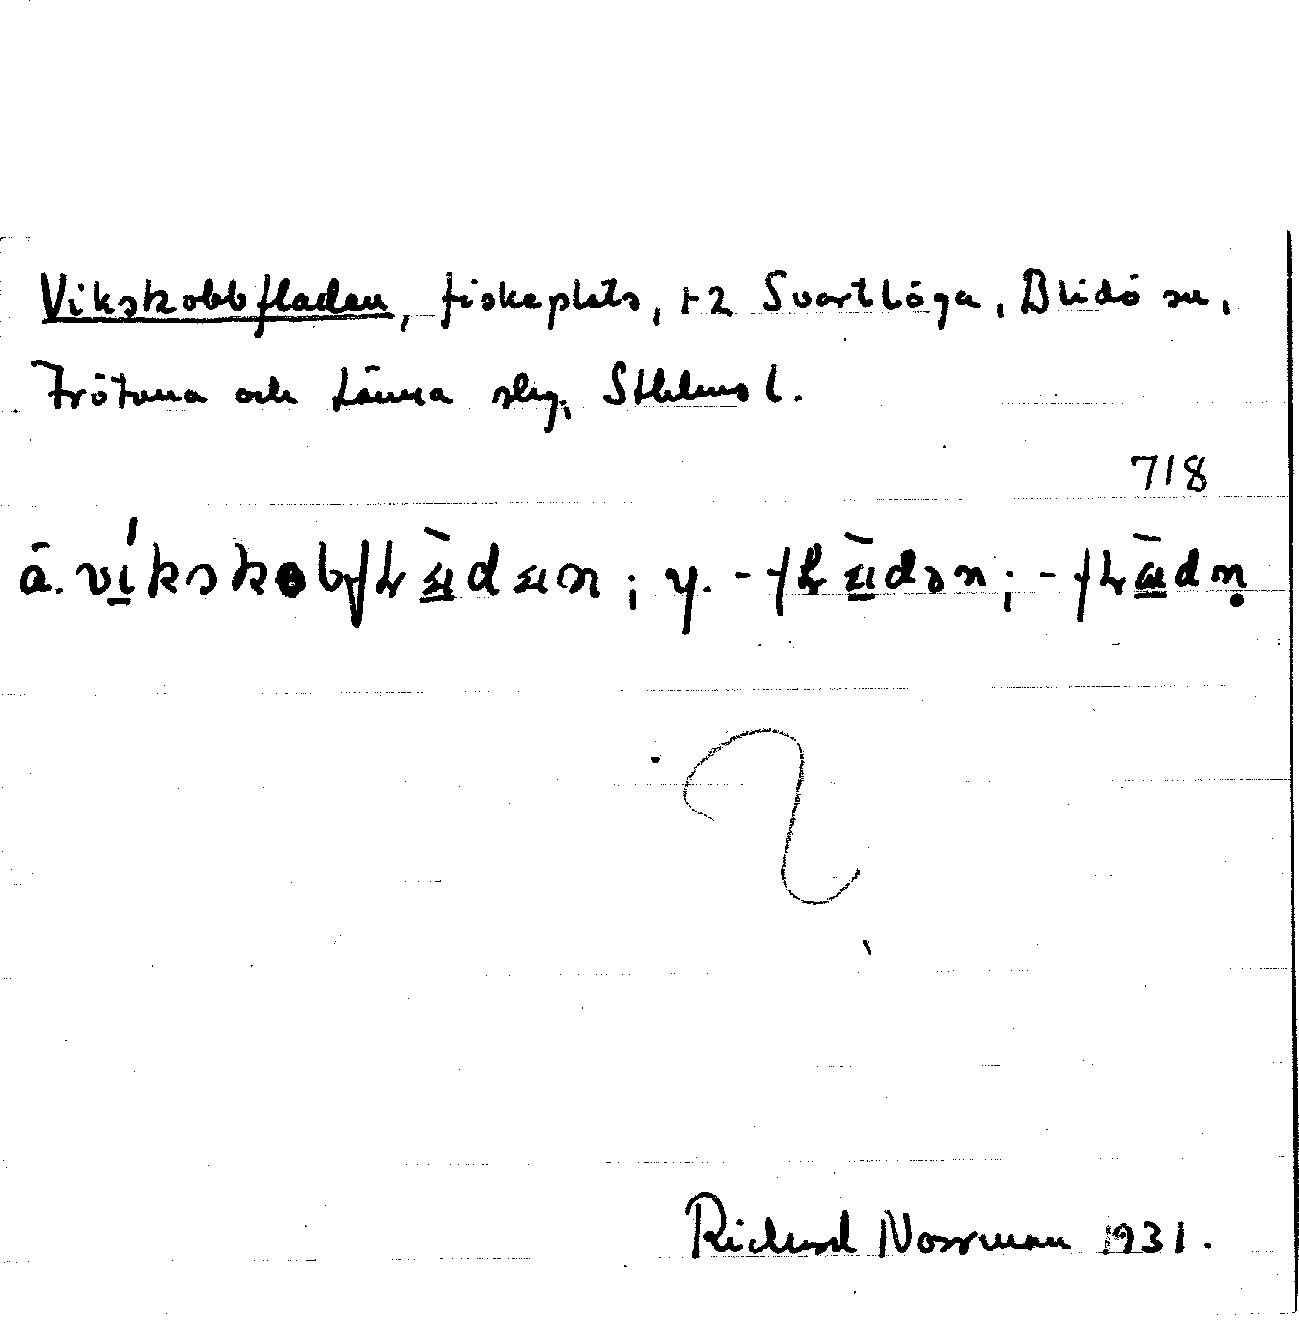 Vikskobbfladen, fiskeplats, 1-2 Svartlöga, Blidö sn,
Frötuna och Länna slg, Sthlms l.
718
ä. víkskobfłàdan; y. -fłàdən; -fłàdṇ
Rickard Norrman 1931.